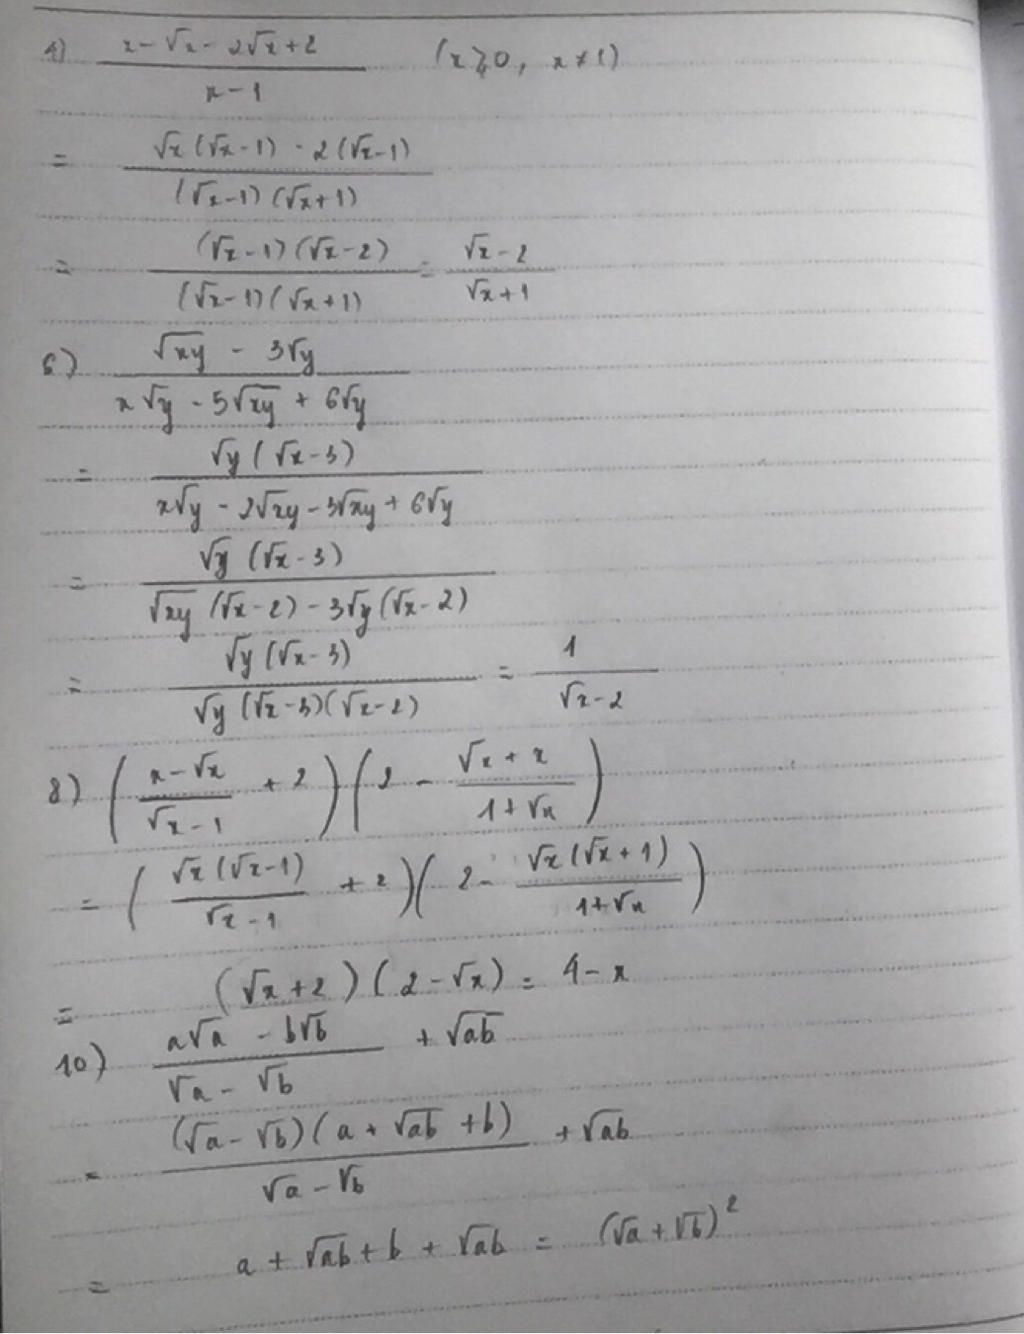 4) (x - √x - 2√x + 2)/(x - 1) (x ≥ 0, x ≠ 1)
= (√x (√x - 1) - 2 (√x - 1))/((√x - 1) (√x + 1))
= ((√x - 1) (√x - 2))/((√x - 1) (√x + 1)) = (√x - 2)/(√x + 1)
6) (√xy - 3√y)/(x√y - 5√xy + 6√y)
= (√y (√x - 3))/(x√y - 2√xy - 3√xy + 6√y)
= (√y (√x - 3))/(√xy (√x - 2) - 3√y (√x - 2))
= (√y (√x - 3))/(√y (√x - 3)(√x - 2)) = 1/(√x - 2)
8) ((x - √x)/(√x - 1) + 2) (2 - (√x + x)/(1 + √x))
= ((√x (√x - 1))/(√x - 1) + 2) (2 - (√x (√x + 1))/(1 + √x))
= (√x + 2) (2 - √x) = 4 - x
10) (a√a - b√b)/(√a - √b) + √ab
= ((√a - √b) (a + √ab + b))/(√a - √b) + √ab
= a + √ab + b + √ab = (√a + √b)²